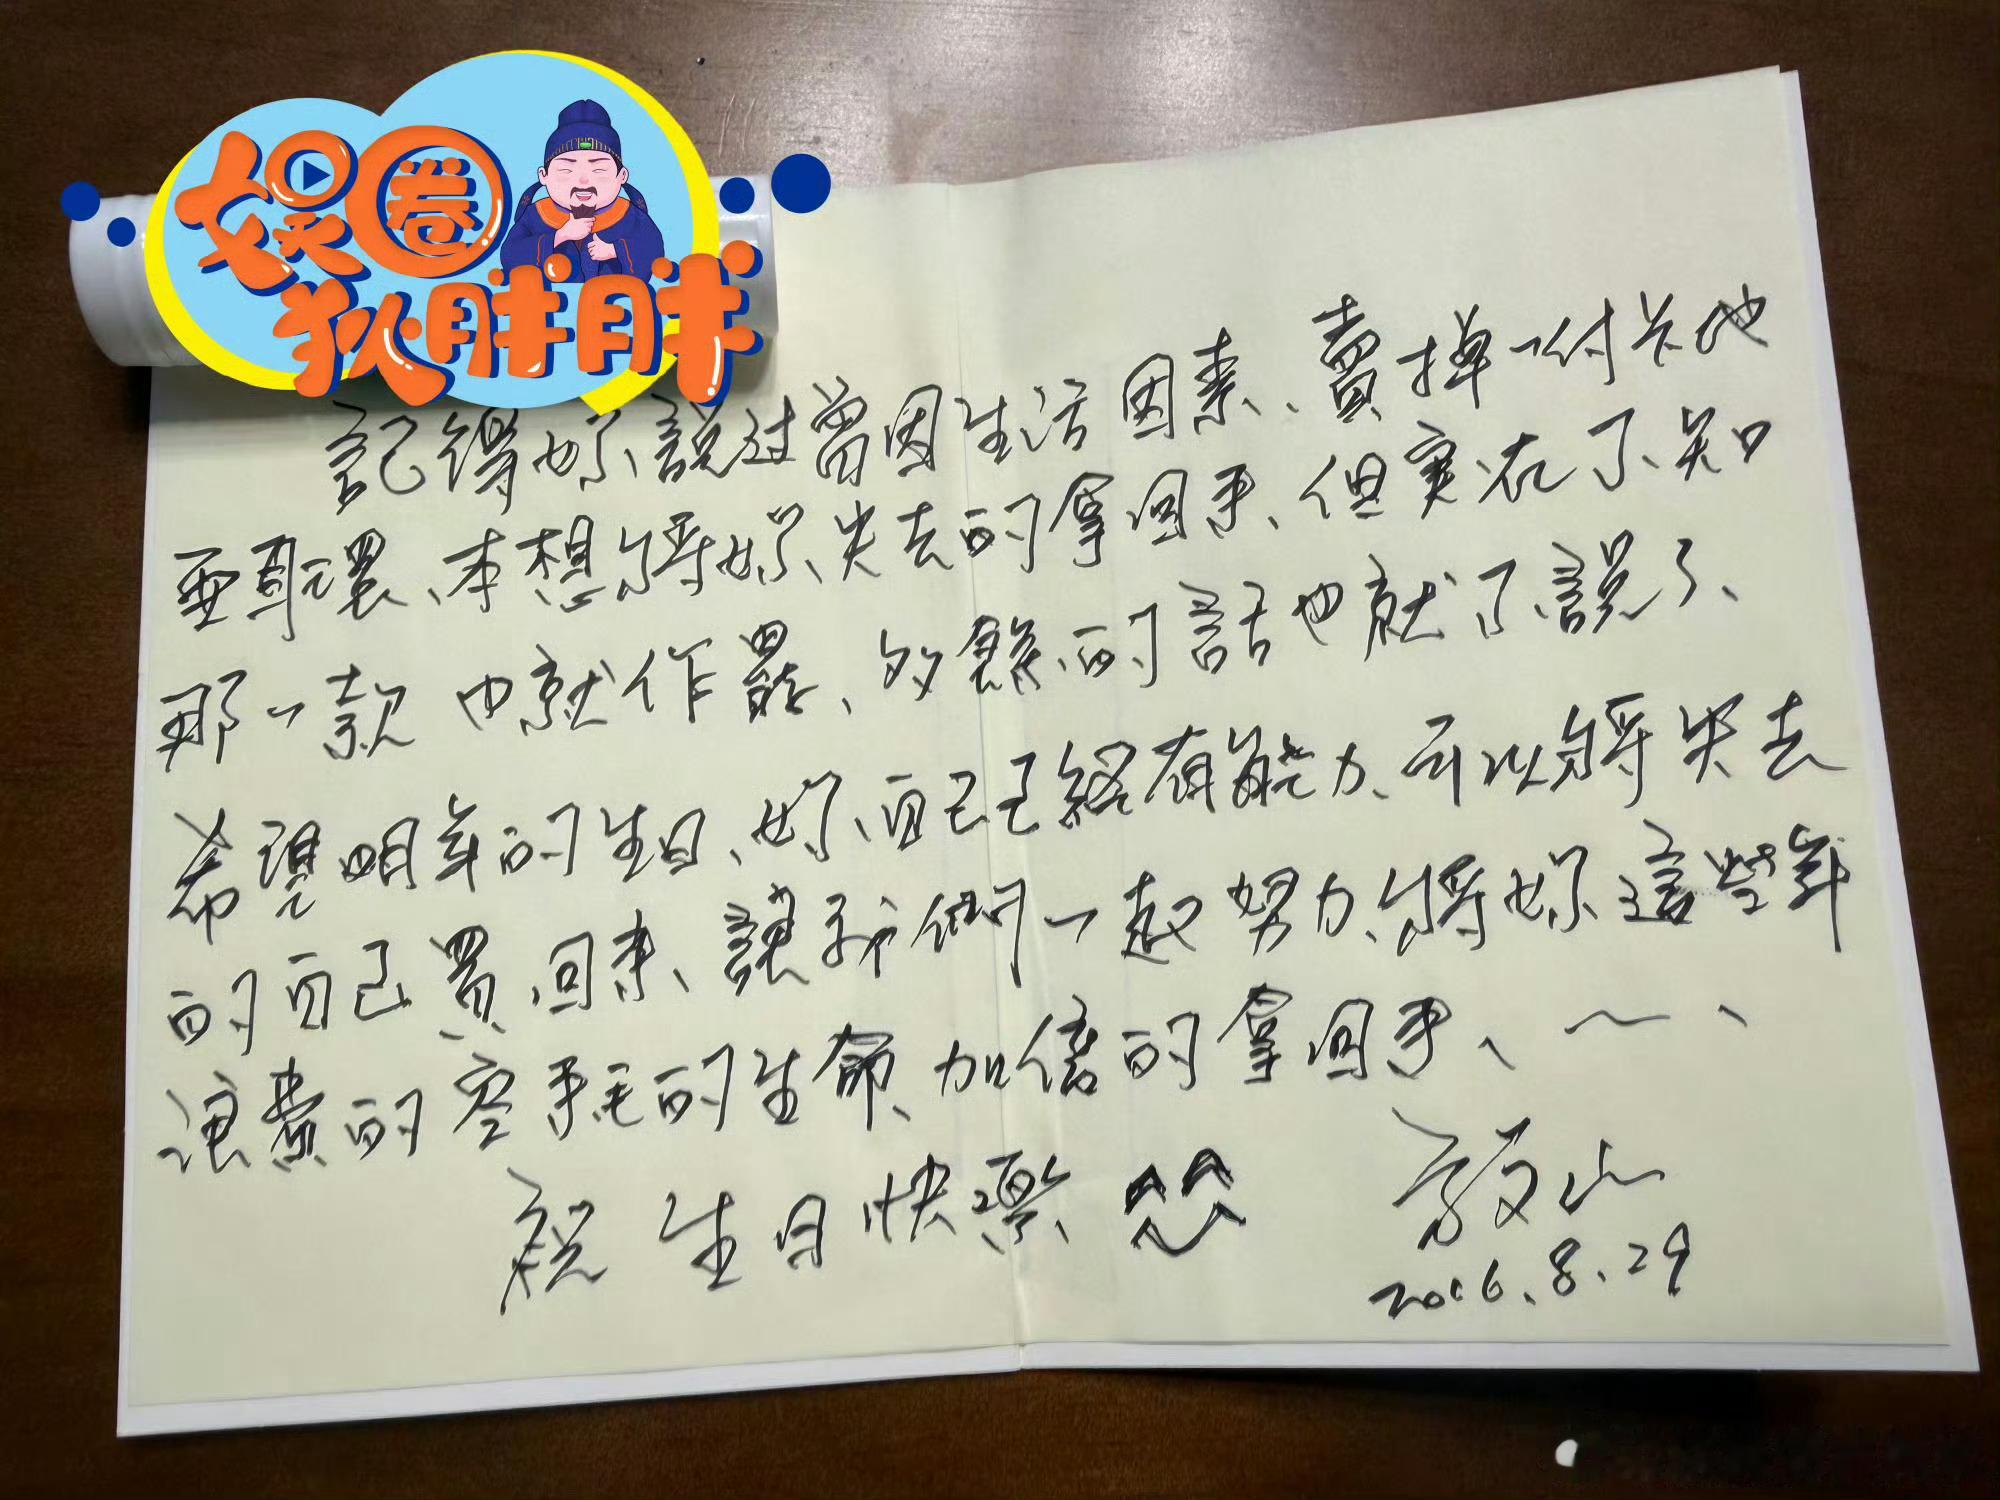 娱圈
狄胖胖
記得妳說过曾因生活因素、賣掉一付卡地
亞耳環、本想將妳失去的拿回來、但実在不知
那一款 也就作罷、多餘的話也就不說了、
希望明年的生日、妳自己已経有能力、可以將失去
的自己買回來、讓我們一起努力、將妳這些年
浪費的 的生命、加倍的拿回來、~、
祝 生日快樂
2016.8.29